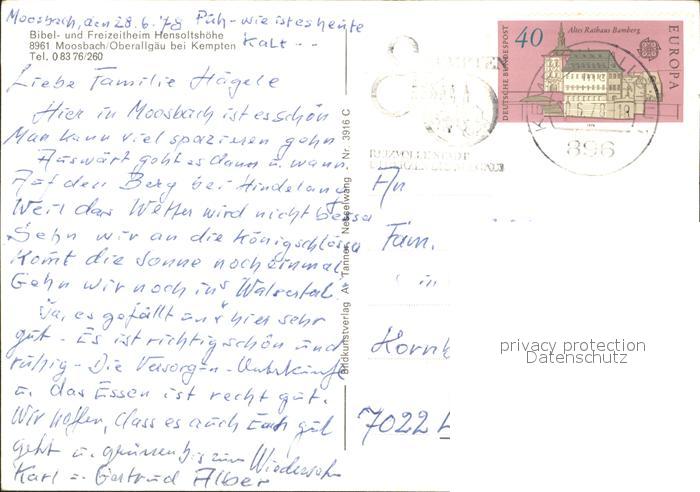 Moosbach, den 28.6.78 Püh - wie ist es heute
kalt - -
Bibel- und Freizeitheim Hensoltshöhe
8961 Moosbach/Oberallgäu bei Kempten
Tel. 0 83 76/260
Liebe Familie Hägele
Hier in Moosbach ist es schön
Man kann viel spazieren gehn
Auswärt geht es dann u. wann
Auf den Berg bei Hindelang
Weil das Wetter wird nicht besser
Sehn wir an die Königschlösser
Komt die Sonne noch einmal
Gehn wir noch ins Walsertal.
Ja, es gefällt uns hier sehr
gut - Es ist richtig schön und
ruhig - Die Versorgung - Unterkünfte
u. das Essen ist recht gut.
Wir hoffen, dass es auch Euch gut
geht u. grüssen bis zum Wiedersehn
Karl u. Gertrud Alber
Bildkunstverlag A. Tanner, Nesselwang - Nr. 3916 C
DEUTSCHE BUNDESPOST
40
Altes Rathaus Bamberg
EUROPA
896
An
Fam.
in
7022
privacy protection
Datenschutz